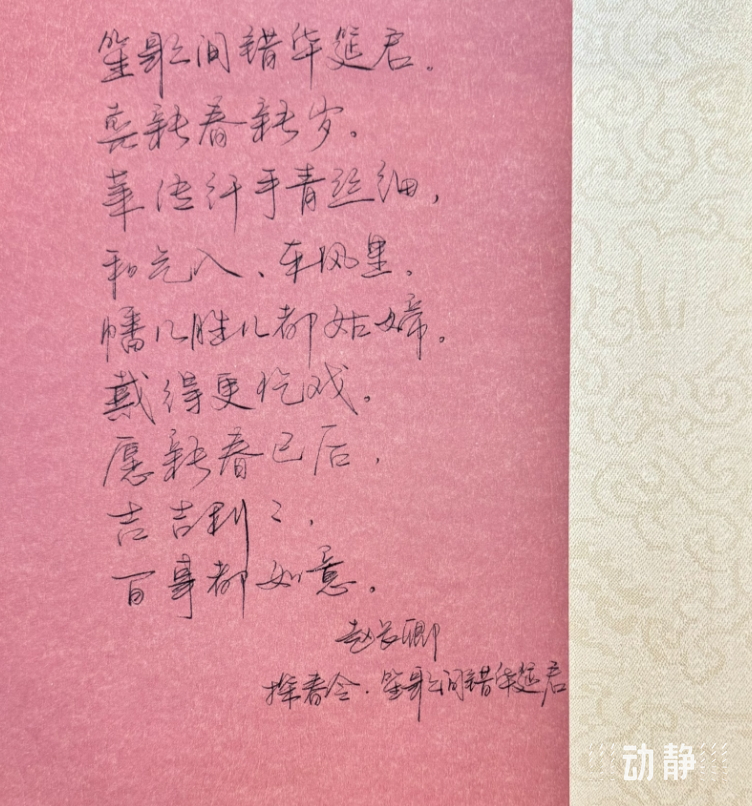 笙歌间错华筵启。
喜新春新岁。
菜传纤手青丝细,
和气入、东风里。
幡儿胜儿都姑媂。
戴得更忔戏。
愿新春已后,
吉吉利〻,
百事都如意。
赵长卿
探春令·笙歌间错华筵启
动静